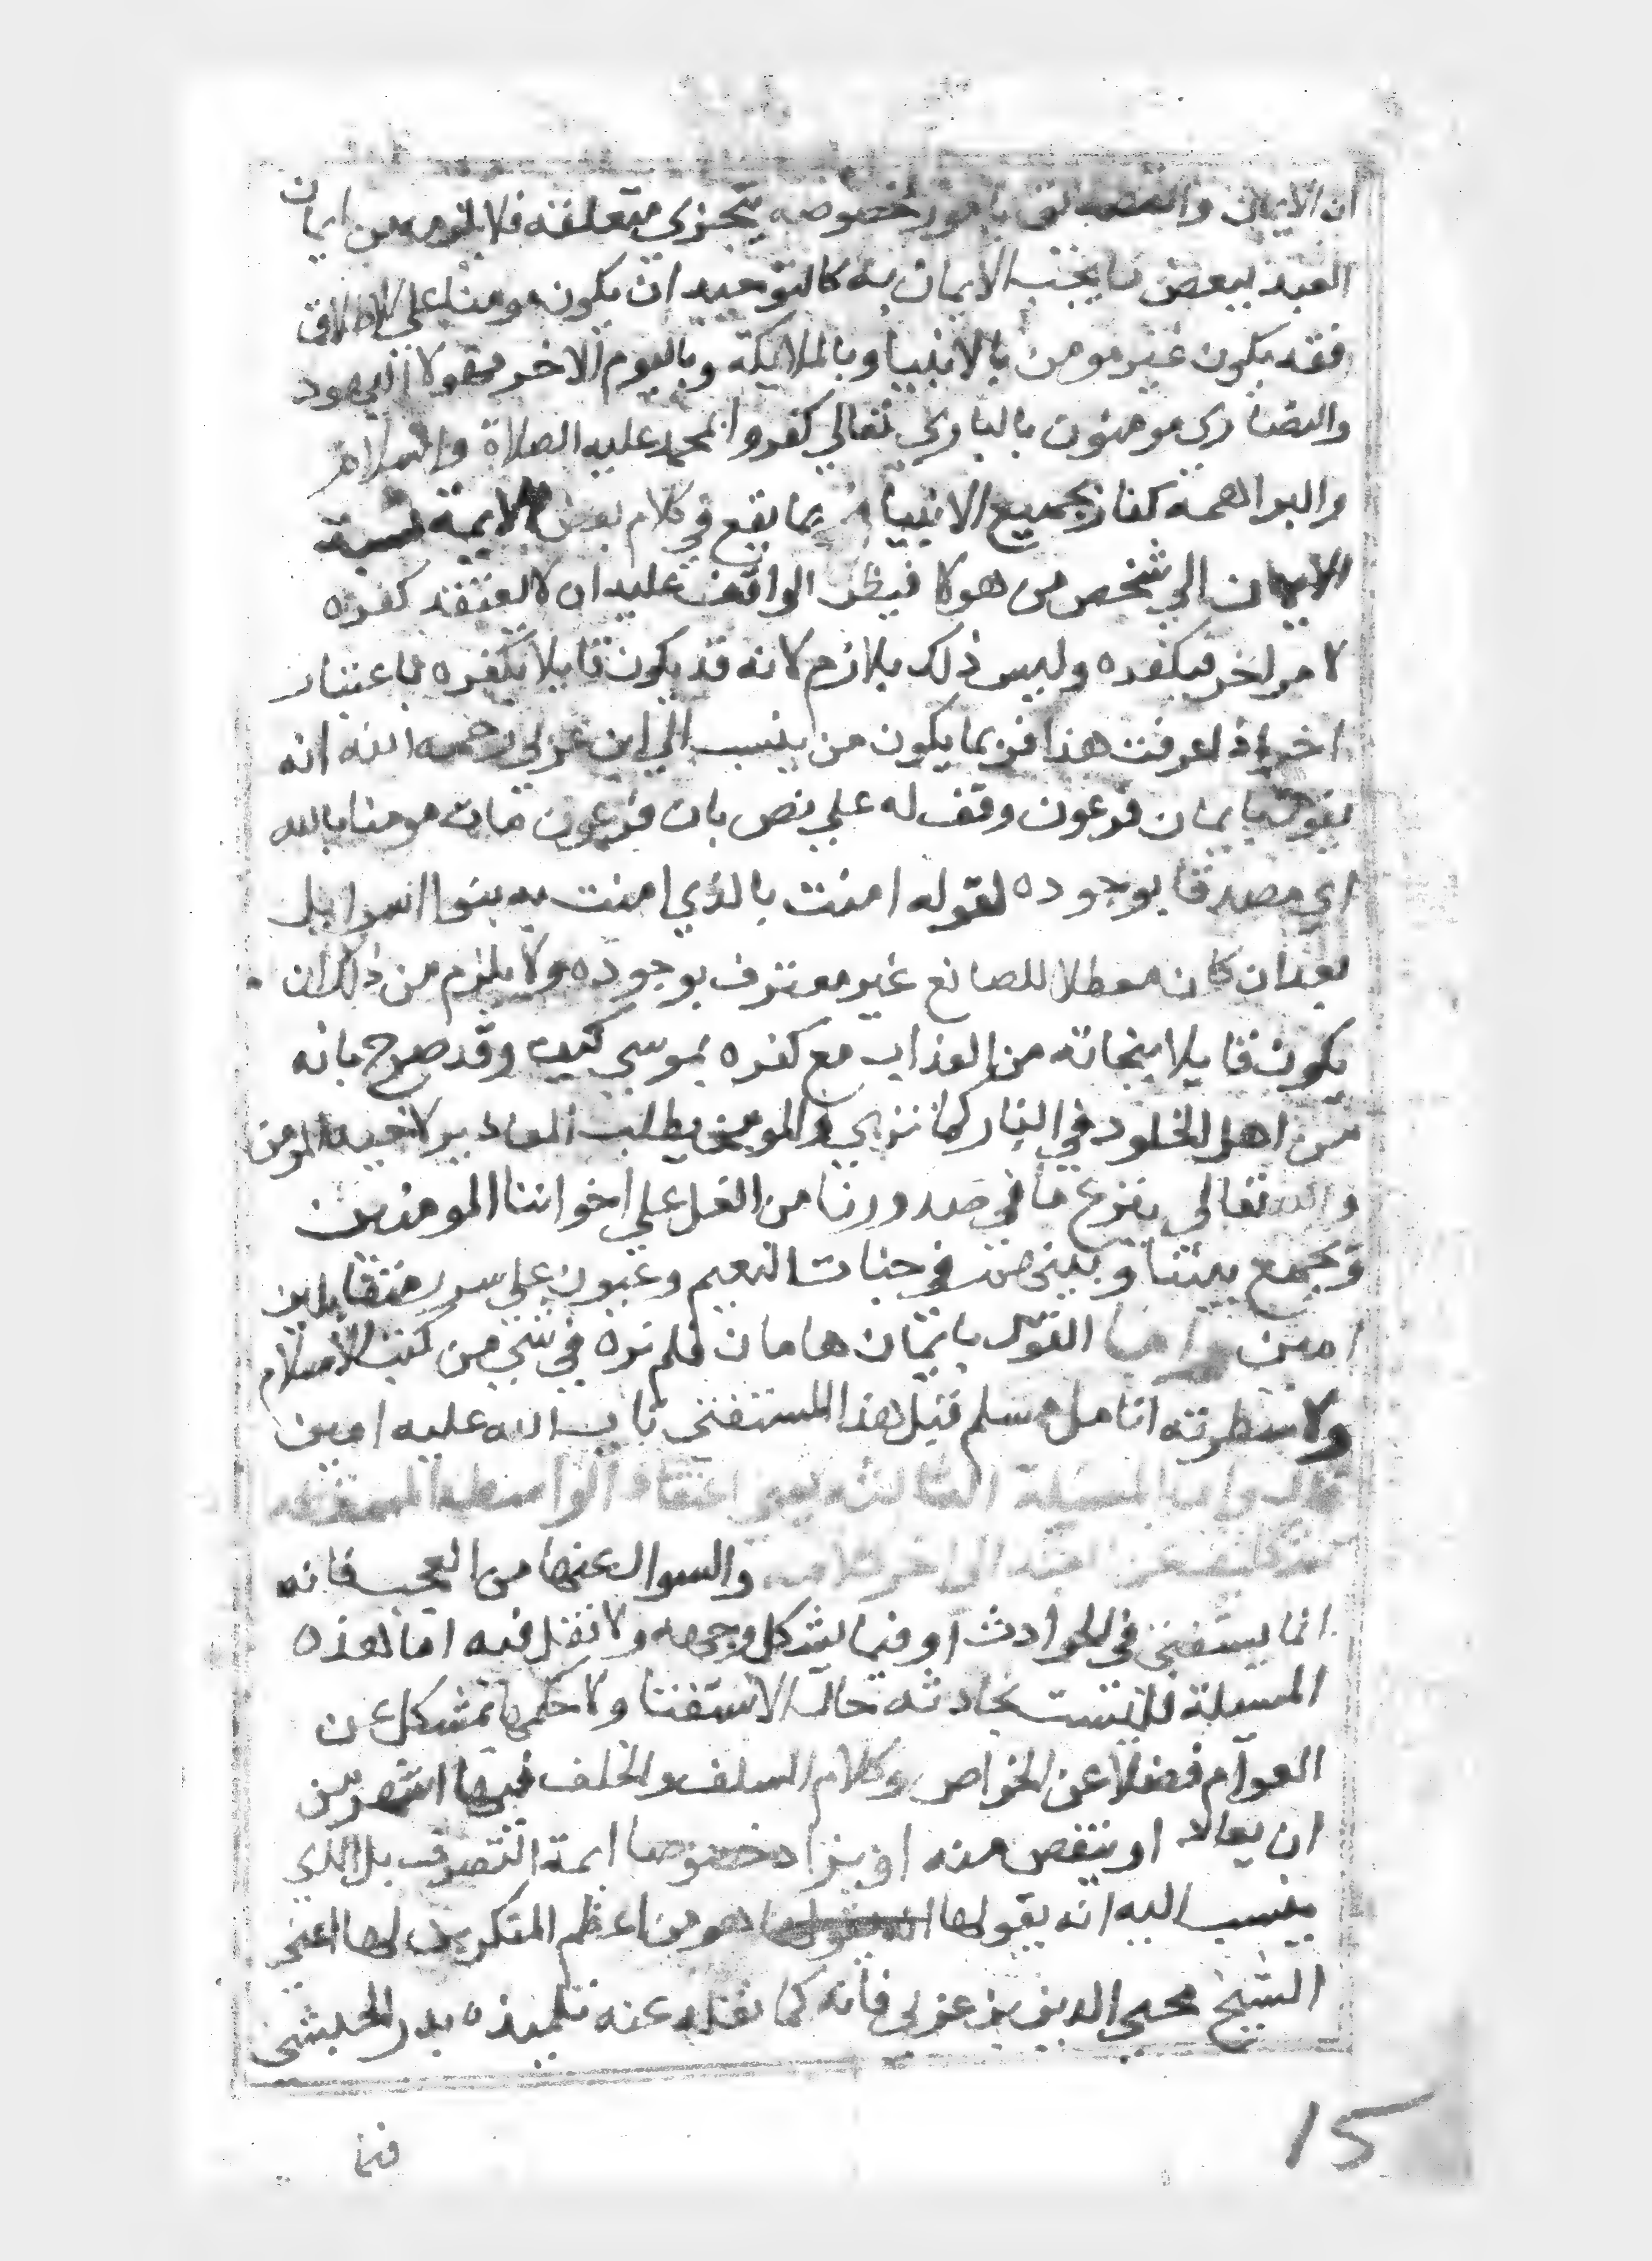 ان الايمان والتصديق بامور مخصوصه يتجزي متعلقه فلا يلزم من ايمان
العبد ببعض ما يجب الايمان به كالتوحيد ان يكون مومنا علي الاطلاق
فقد يكون غير مومن بالانبيا وبالملايكة وباليوم الاخر فهولا اليهود
والنصاري مومنون بالباري تعالي كفروا بمحمد عليه الصلاة والسلام
والبراهمه كفار بجميع الانبيا فربما يقع في كلام بعض الايمة نسبة
الايمان الي شخص من هولا فيظن الواقف عليه ان لا يعتقد كفره
لامر اخر فيكفره وليس ذلك بلازم لانه قد يكون قايلا بكفره باعتبار
اخر اذا عرفت هذا فربما يكون من ينسب الي ابن عربي رحمه الله انه
يقول بايمان فرعون وقف له علي نص بان فرعون مات مومنا بالله
اي مصدقا بوجوده لقوله امنت بالذي امنت به بنوا اسرايل
بعد ان كان معطلا للصانع غير معترف بوجوده ولا يلزم من ذلك ان
يكون قايلا بنجاته من العذاب مع كفره بموسي كيف وقد صرح بانه
من اهل الخلود في النار كما نري والمومن يطلب المعاذير لاخيه المومن
والله تعالي ينزع ما في صدورنا من الغل علي اخواننا المومنين
ويجمع بيننا وبينهم في جنات النعيم وعيون علي سرر متقابلين
امين واما القول بايمان هامان فلم نره في شي من كتب الاسلام
ولا سطرته انامل مسلم قبل هذا المستفتي تاب الله عليه امين
قال واما المسيلة الثالثة وهي اعتقاد
الي اخر كلامه والسوال عنها من العجب فانه
انما يستفتي في الحوادث او فيما يشكل وجهه ولا نقل فيه اما هذه
المسيلة فليست بحادثه حالة الاستفتا ولا حكمها بمشكل عن
العوام فضلا عن الخواص وكلام السلف والخلف فيها اشهر من
ان يعاد او ينقص منه او يزاد خصوصا ايمة التصوف بل الذي
ينسب اليه انه يقولها هو من اعظم المنكرين لها اعني
الشيخ محيي الدين بن عربي فانه كما نقله عنه تلميذه بدر الحبشي
فيما
15